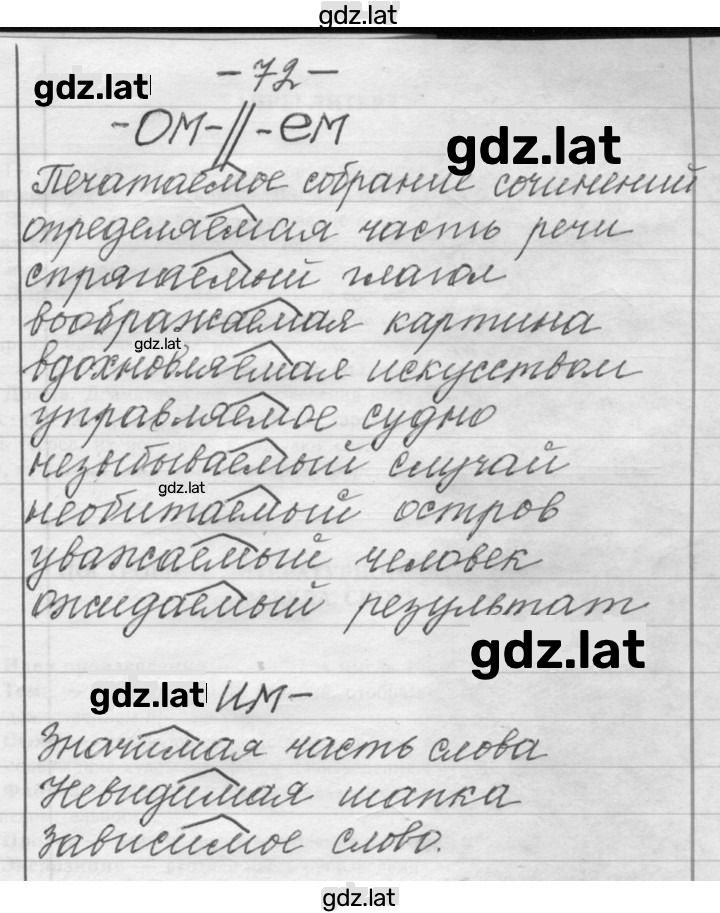 gdz.lat
- 72 -
gdz.lat
-ом- // -ем
gdz.lat
Печатаемое собрание сочинений
определяемая часть речи
спрягаемый глагол
воображаемая картина
gdz.lat
вдохновляемая искусством
управляемое судно
незыбываемый случай
gdz.lat
необитаемый остров
уважаемый человек
ожидаемый результат
gdz.lat
gdz.lat
им-
Значимая часть слова
Невидимая шапка
Зависимое слово.
gdz.lat